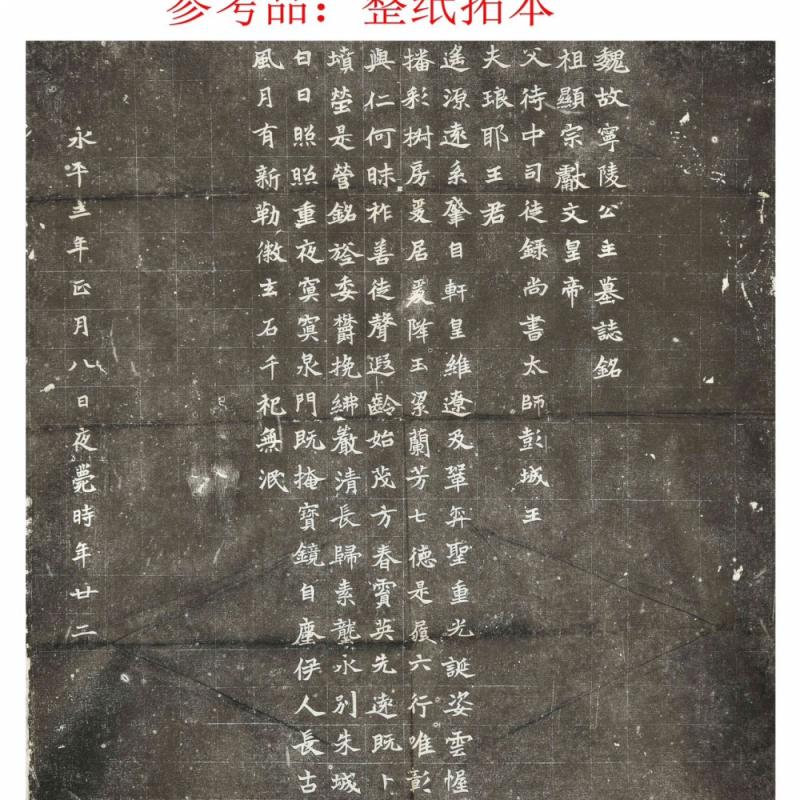 参考品：整纸拓本
魏故寧陵公主墓誌銘
祖顯宗獻文皇帝
父侍中司徒録尚書太師彭城王
夫琅耶王君
遥源遠系肇自軒皇維遼及鞏弈聖重光誕姿雲幄
播彩椒房爰居爰降玉梁蘭芳七德是履六行唯彰
與仁何昧祚善徒聲遐齡始茂方春霣英先遠既卜
墳塋是營銘旌委鬱挽紼嚴清長歸素壟永別朱城
白日照照重夜冥冥泉門既掩寶鏡自塵伊人長古
風月有新勒徽玄石千祀無泯
永平三年正月八日夜薨時年廿二